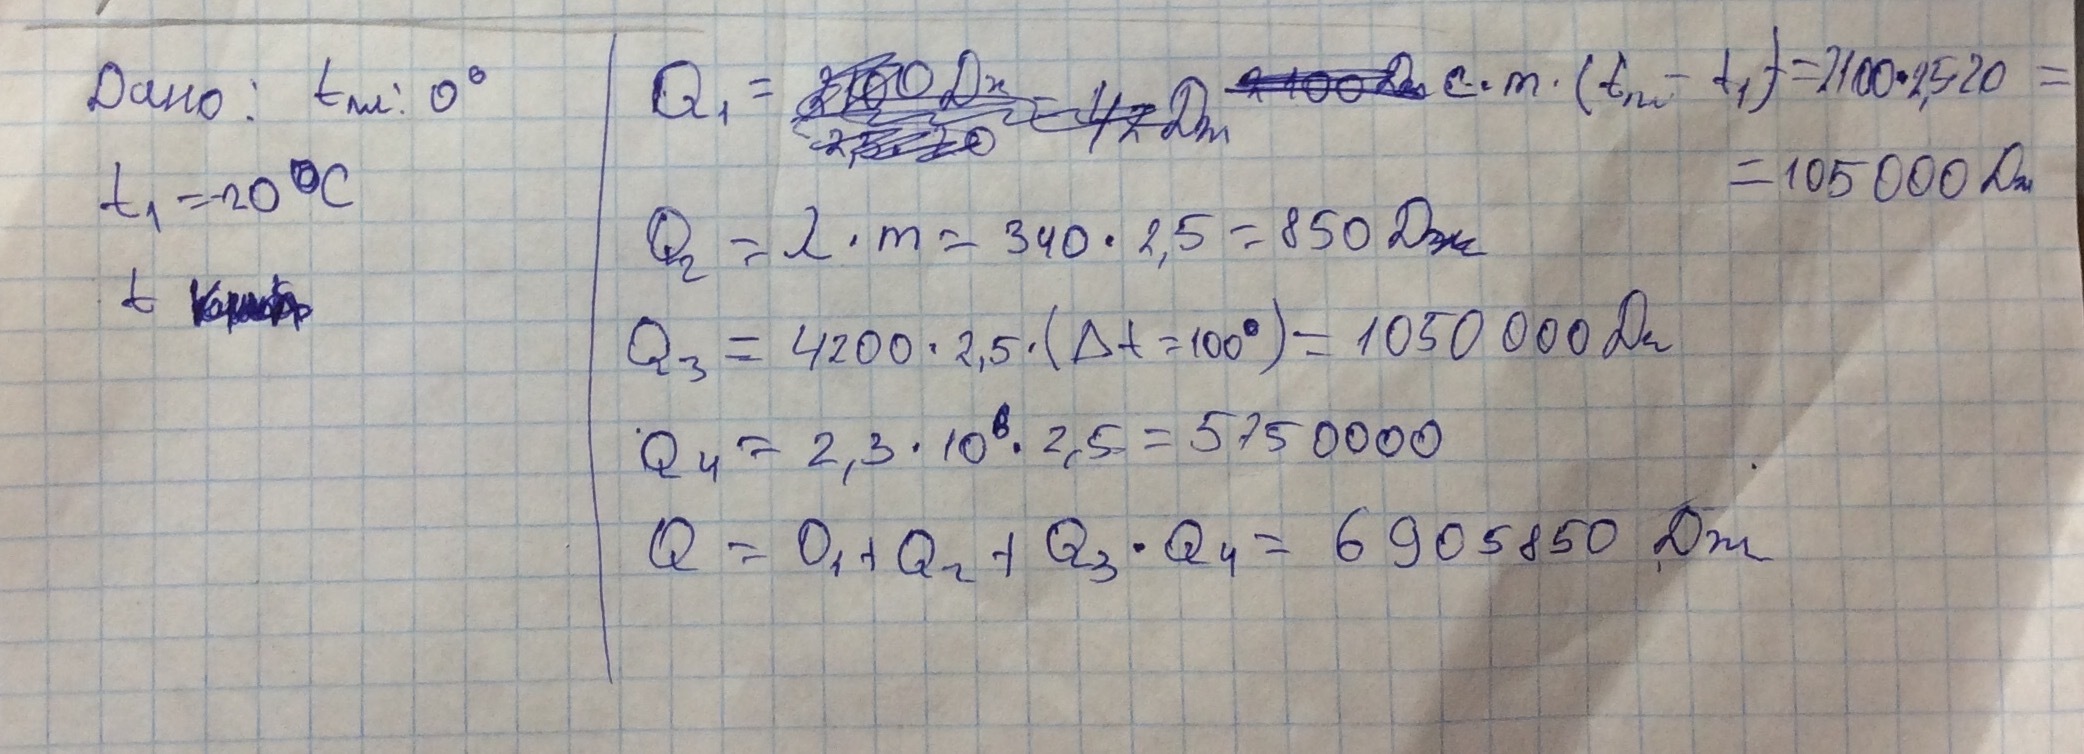 Дано: tпл: 0°
t₁ = -20°C
t
Q₁ = c·m·(tпл - t₁) = 2100·2,5·20 =
= 105000 Дж
Q₂ = λ·m = 340·2,5 = 850 Дж
Q₃ = 4200·2,5·(Δt = 100°) = 1050 000 Дж
Q₄ = 2,3·10⁶·2,5 = 5750000
Q = Q₁ + Q₂ + Q₃·Q₄ = 6905850 Дж